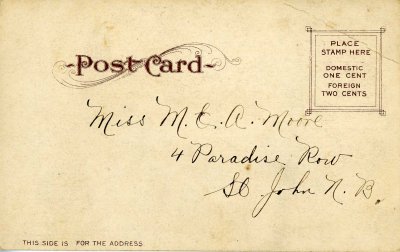 Post Card
PLACE
STAMP HERE
DOMESTIC
ONE CENT
FOREIGN
TWO CENTS
Miss M. E. A. Moore
4 Paradise Row
St John N. B.
THIS SIDE IS FOR THE ADDRESS